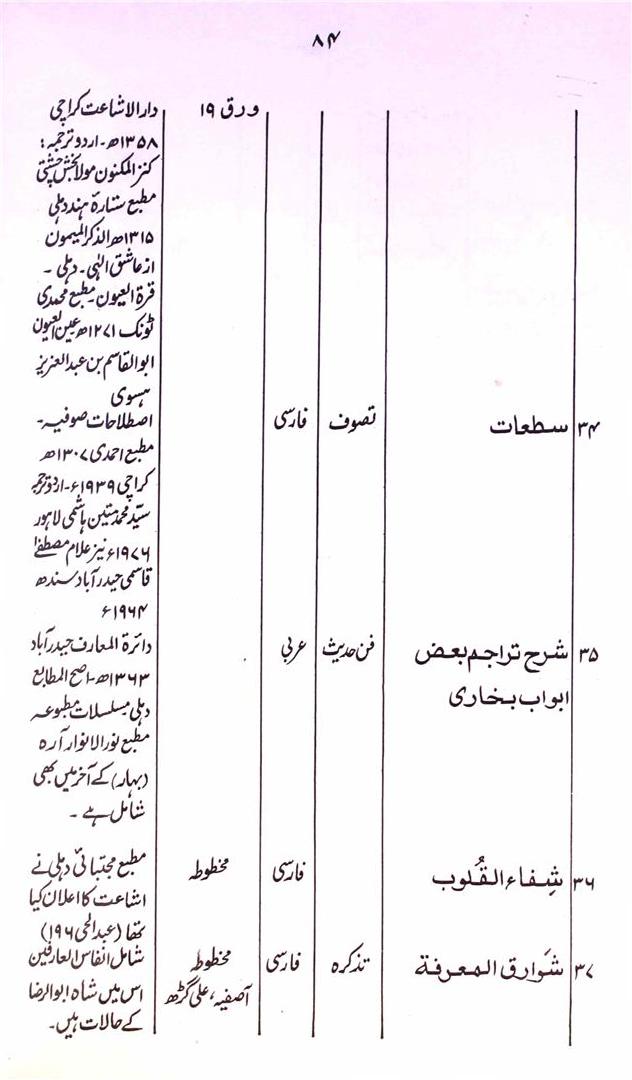 ۸۴
ورق ۱۹ دارالاشاعت کراچی
۱۳۵۸ھ۔ اردو ترجمہ:
کنز المکنون مولا بخش چشتی
مطبع ستارۂ ہند دہلی
۱۳۱۵ھ الذکر المیمون
از عاشق الٰہی۔ دہلی۔
قرۃ العیون۔ مطبع محمدی
ٹونک ۱۲۷۱ھ عین العیون
ابوالقاسم بن عبدالعزیز
ہسوی
۳۴ سطعات تصوف فارسی اصطلاحات صوفیہ۔
مطبع احمدی ۱۳۰۷ھ
کراچی ۱۹۳۹ء۔ اردو ترجمہ
سیّد محمد متین ہاشمی لاہور
۱۹۷۶ء نیز غلام مصطفےٰ
قاسمی حیدرآباد سندھ
۱۹۶۴ء
۳۵ شرح تراجم بعض فن حدیث عربی دائرۃ المعارف حیدرآباد
ابواب بخاری ۱۳۶۳ھ۔ اصح المطابع
دہلی مسلسلات مطبوعہ
مطبع نور الانوار آرہ
(بہار) کے آخر میں بھی
شامل ہے۔
۳۶ شِفاء القُلوب فارسی مخطوطہ مطبع مجتبائی دہلی نے
اشاعت کا اعلان کیا
تھا (عبدالحی ۱۹۶)
۳۷ شَوارق المعرفة تذکرہ فارسی مخطوطہ شامل انفاس العارفین
آصفیہ، علی گڑھ اس میں شاہ ابوالرضا
کے حالات ہیں۔